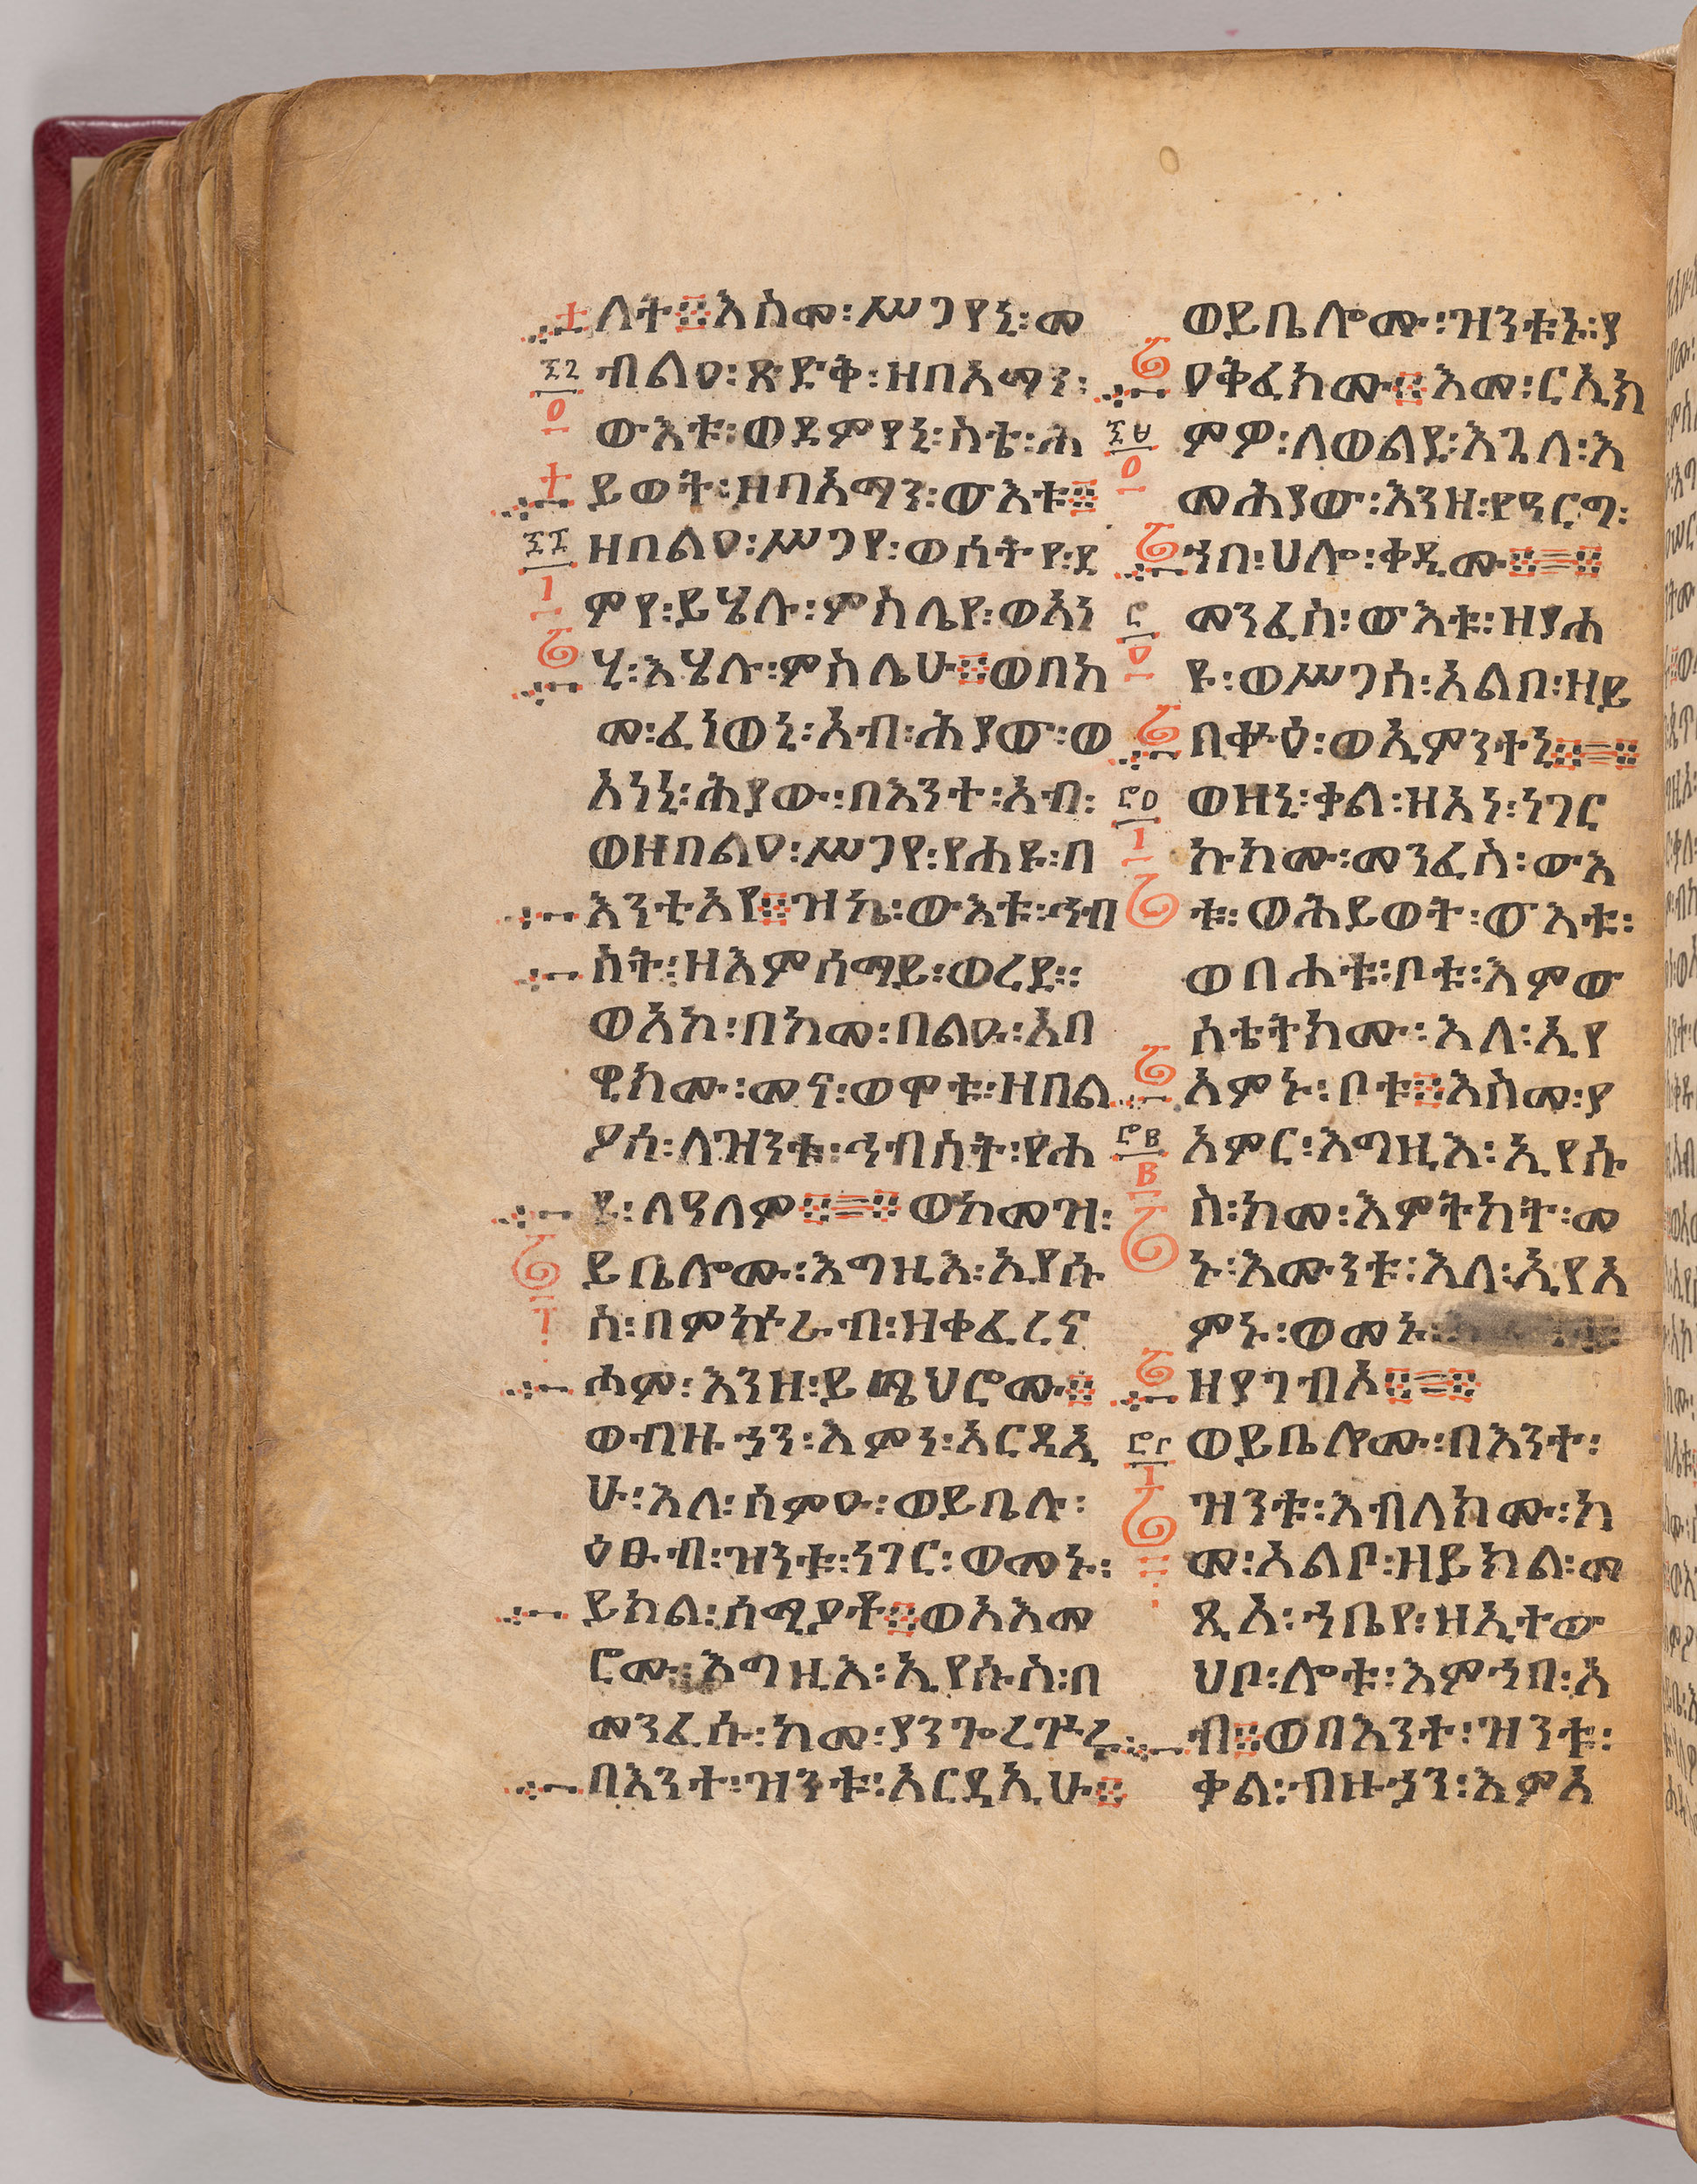 ለት፨እስመ፡ሥጋየኒ፡መ
ብልዕ፡ጽድቅ፡ዘበአማን፡
ውእቱ፡ወደምየኒ፡ስቴ፡ሕ
ይወት፡ዘበአማን፡ውእቱ፨
ዘበልዐ፡ሥጋየ፡ወሰትየ፡ደ
ምየ፡ይሄሉ፡ምስሌየ፡ወአነ
ሂ፡እሄሉ፡ምስሌሁ፨ወበከ
መ፡ፈነወኒ፡አብ፡ሕያው፡ወ
አነኒ፡ሕያው፡በእንተ፡አብ፡
ወዘበልዐ፡ሥጋየ፡የሐዩ፡በ
እንቲአየ፨ዝኬ፡ውእቱ፡ኅብ
ስት፡ዘእምሰማይ፡ወረደ።
ወአኮ፡በከመ፡በልዑ፡አበ
ዊክሙ፡መና፡ወሞቱ፡ዘበል
ዖሰ፡ለዝንቱ፡ኅብስት፡የሐ
ዩ፡ለዓለም፨=፨ወከመዝ፡
ይቤሎሙ፡እግዚእ፡ኢየሱ
ስ፡በምኵራብ፡ዘቀፈረና
ሖም፡እንዘ፡ይሜህሮሙ፨
ወብዙኃን፡እምን፡አርዳኢ
ሁ፡እለ፡ሰምዑ፡ወይቤሉ፡
ዕፁብ፡ዝንቱ፡ነገር፡ወመኑ፡
ይክል፡ሰሚዖቶ፨ወአእመ
ሮሙ፡እግዚእ፡ኢየሱስ፡በ
መንፈሱ፡ከመ፡ያንጐረጕሩ
በእንተ፡ዝንቱ፡አርዳኢሁ፨
ወይቤሎሙ፡ዝንቱኑ፡ያ
ዐቅፈክሙ፨እመ፡ርኢክ
ምዎ፡ለወልደ፡እጓለ፡እ
መሕያው፡እንዘ፡የዓርግ፡
ኀበ፡ሀሎ፡ቀዲሙ፨=፨
መንፈስ፡ውእቱ፡ዘያሐ
ዩ፡ወሥጋሰ፡አልቦ፡ዘይ
በቍዕ፡ወኢምንተኒ፨=፨
ወዝኒ፡ቃል፡ዘአነ፡ነገር
ኩክሙ፡መንፈስ፡ውእ
ቱ፡ወሕይወት፡ውእቱ፡
ወበሐቱ፡ቦቱ፡እምው
ስቴትክሙ፡እለ፡ኢየ
አምኑ፡ቦቱ፨እስመ፡ያ
አምር፡እግዚእ፡ኢየሱ
ስ፡ከመ፡እምትካት፡መ
ኑ፡እሙንቱ፡እለ፡ኢየአ
ምኑ፡ወመኑ፡
ዘያገብኦ፨=፨
ወይቤሎሙ፡በእንተ፡
ዝንቱ፡እብለክሙ፡ከ
መ፡አልቦ፡ዘይክል፡መ
ጺአ፡ኀቤየ፡ዘኢተው
ህቦ፡ሎቱ፡እምኀበ፡አ
ብ፨ወበእንተ፡ዝንቱ፡
ቃል፡ብዙኃን፡እምአ